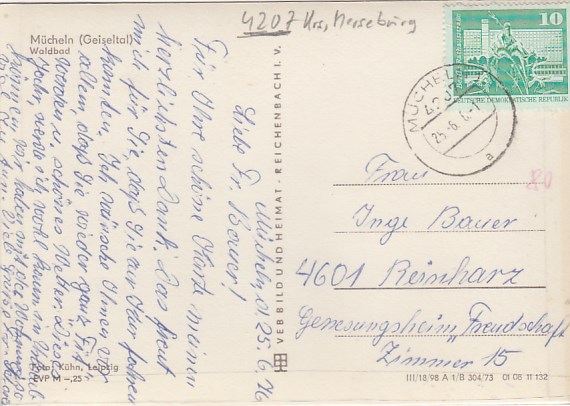 4207 Krs. Merseburg
Mücheln (Geiseltal)
Waldbad
10
Berlin
DEUTSCHE DEMOKRATISCHE REPUBLIK
MÜCHELN
25.-6.
a
Mücheln, d. 25.6.76
Liebe Fr. Bauer!
Für Ihre schöne Karte meinen
herzlichsten Dank. Das freut
mich für Sie, daß Sie zur Kur fahren
konnten. Ich wünsche Ihnen vor
allem, daß Sie wieder ganz fit
werden u. schönes Wetter. Dieses
Jahr werde ich wohl kaum in Urlaub
können. Wir haben mit der
Viele Grüße
VEB BILD UND HEIMAT · REICHENBACH I. V.
Frau
Inge Bauer
4601 Reinharz
Genesungsheim "Freundschaft"
Zimmer 15
80
Foto: Kühn, Leipzig
EVP M -,25
III/18/98 A 1/B 304/73 01 08 11 132